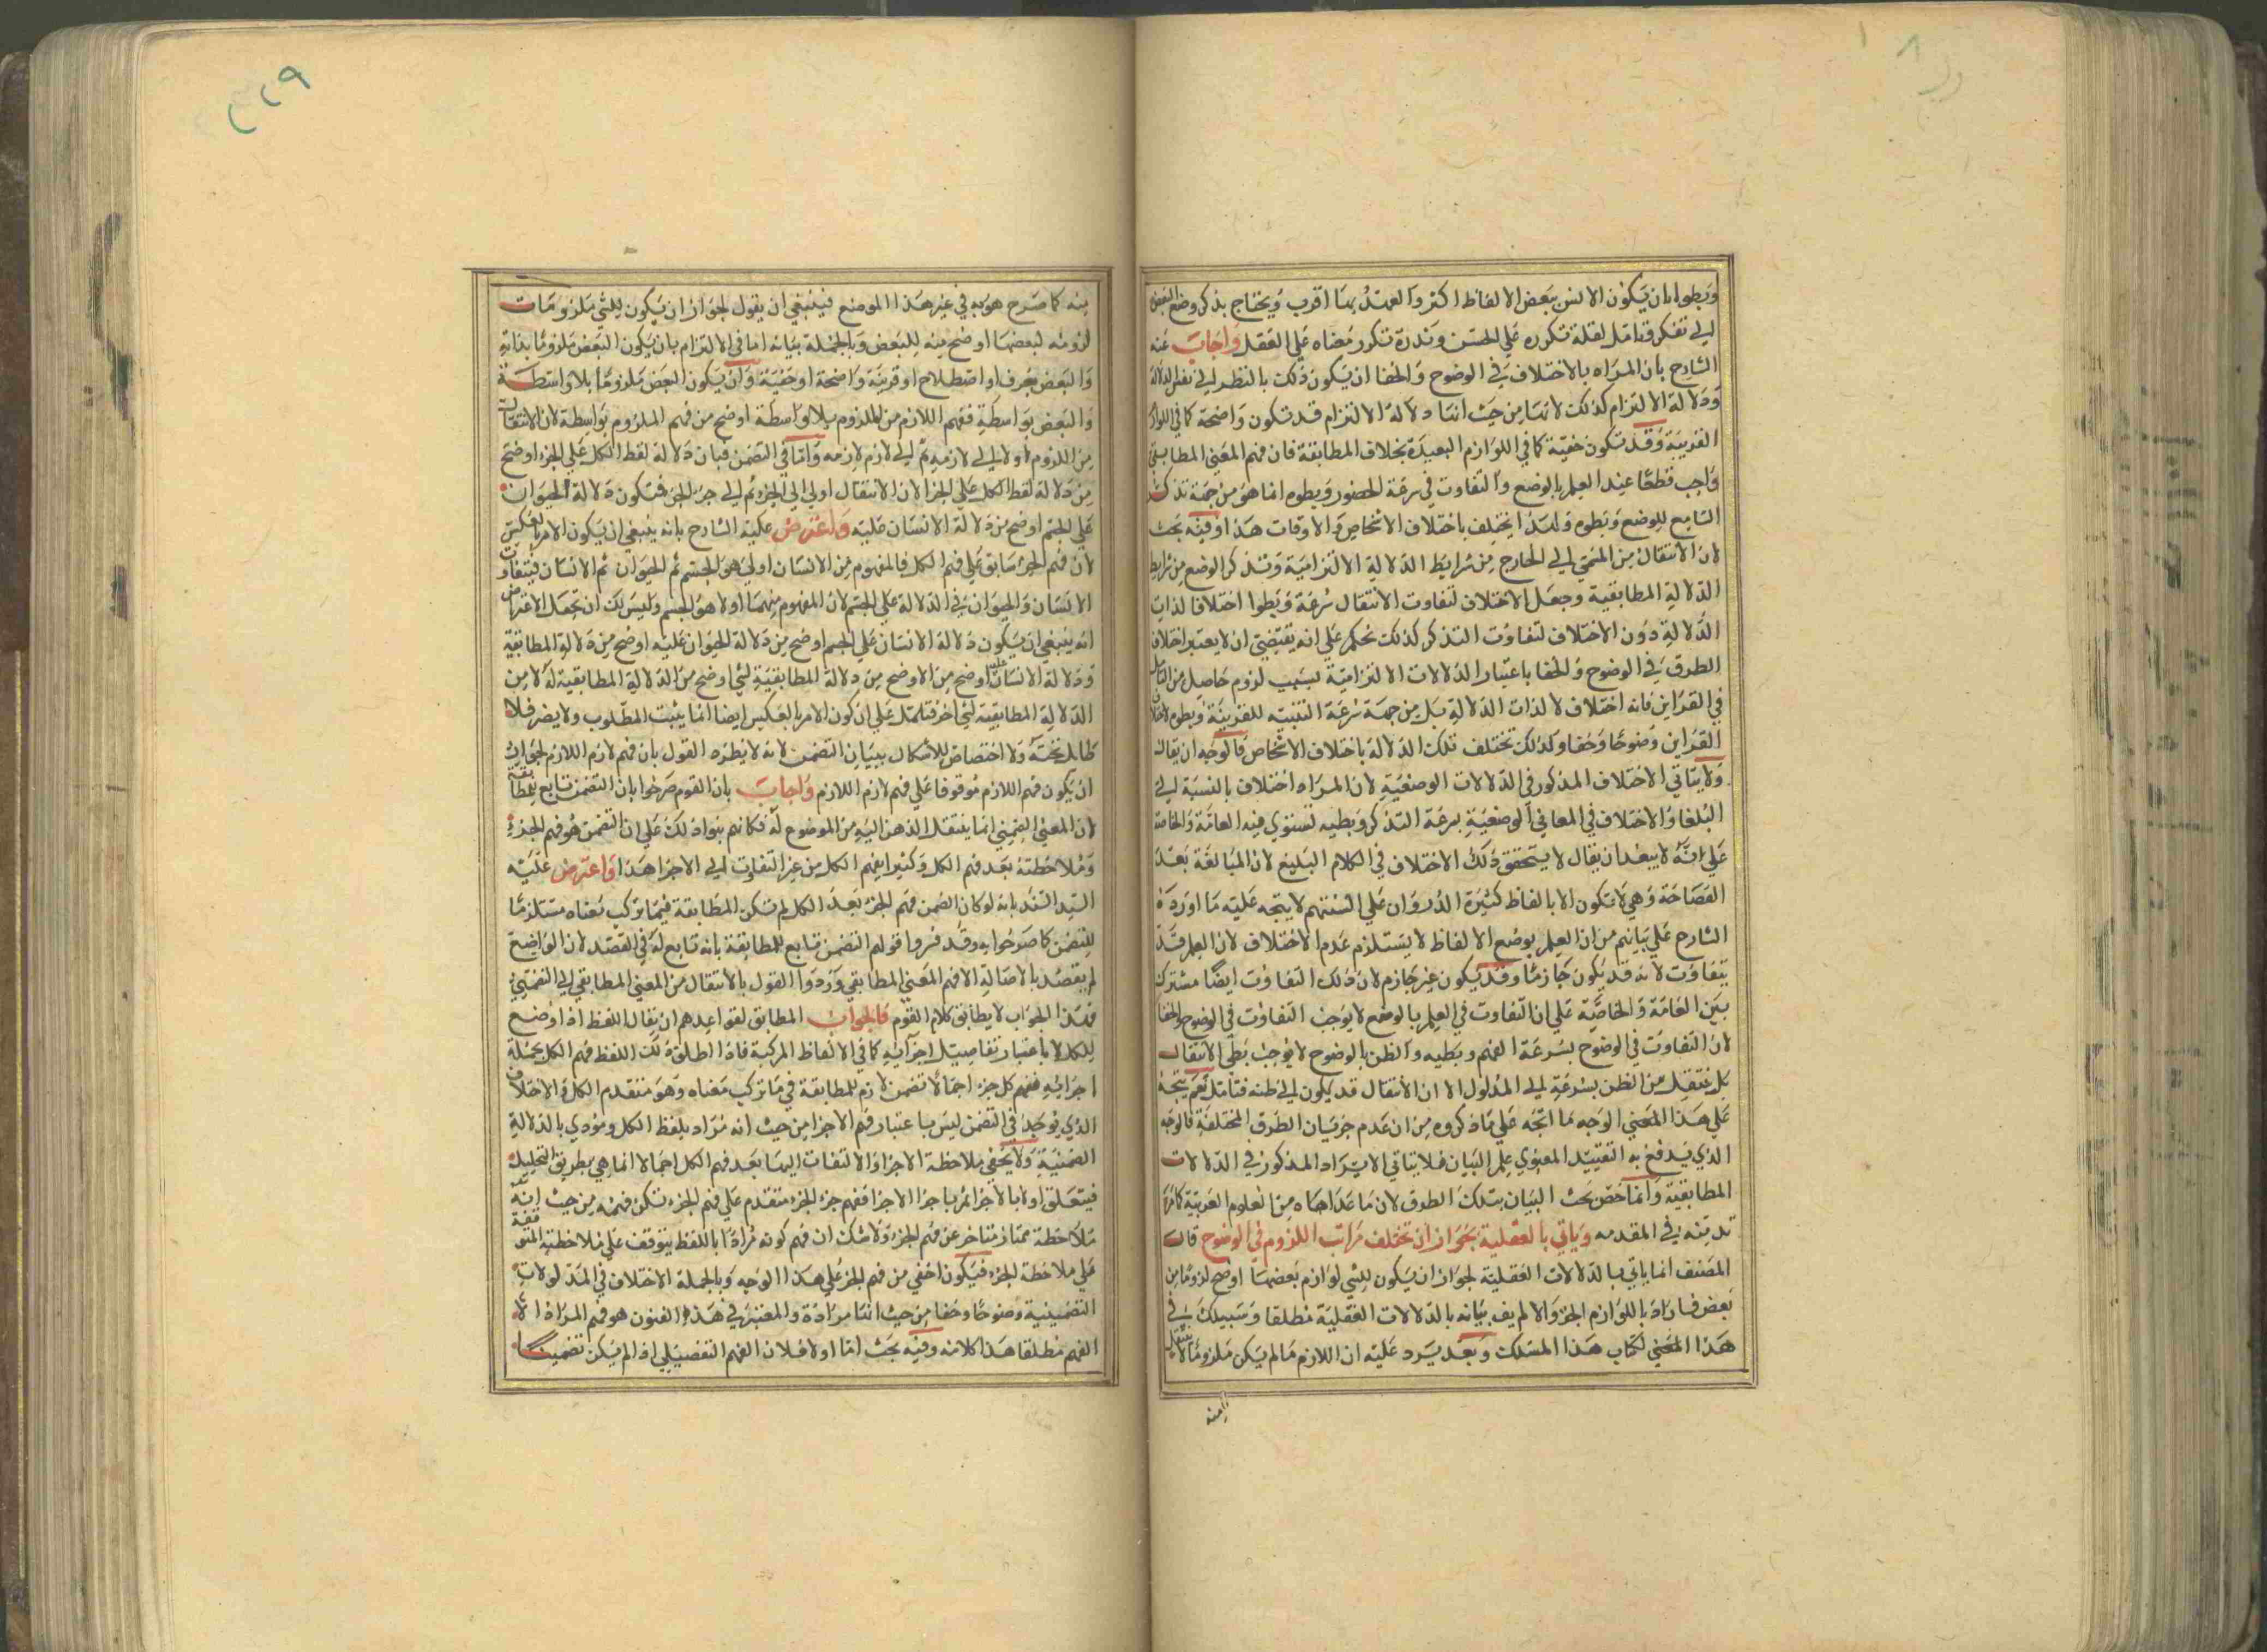 وبطوا بان يكون الانس ببعض الالفاظ اكثر والعهد بها اقرب ويحتاج بذكر وضع البعض
الي تفكر وتامل لقلة تكرره علي الحس وندرة تكرر معناه علي العقل واجاب عنه
الشارح بان المراد بالاختلاف في الوضوح والخفا ان يكون ذلك بالنظر الي نفس الدلالة
ودلالة الالتزام كذلك لانها من حيث انها دلالة الالتزام قد تكون واضحة كما في اللوازم
القريبة وقد تكون خفية كما في اللوازم البعيدة بخلاف المطابقة فان فهم المعني المطابقي
واجب قطعا عند العلم بالوضع والتفاوت في سرعة الحضور وبطوه انما هو من جهة تذكر
السامع للوضع وبطوه ولهذا يختلف باختلاف الاشخاص والاوقات هذا وفيه بحث
لان الانتقال من المسمي الي الخارج من شرايط الدلالة الالتزامية وتذكر الوضع من شرايط
الدلالة المطابقية وجعل الاختلاف لتفاوت الانتقال سرعة وبطوا اختلافا لذات
الدلالة دون الاختلاف لتفاوت التذكر كذلك تحكم علي انه يقتضي ان لا يعتبر اختلاف
الطرق في الوضوح والخفا باعتبار الدلالات الالتزامية بسبب لزوم حاصل من التامل
في القراين فانه اختلاف لا لذات الدلالة بل من جهة سرعة التنبيه للقرينة وبطوه لاختلاف
القراين وضوحا وخفا وكذلك تختلف تلك الدلالة باختلاف الاشخاص فالوجه ان يقال
ولا يتاتي الاختلاف المذكور في الدلالات الوضعية لان المراد اختلاف بالنسبة الي
البلغا والاختلاف في المعاني الوضعية بسرعة التذكر وبطيه تستوي فيه العامة والخاصة
علي انه لا يبعد ان يقال لا يتحقق ذلك الاختلاف في الكلام البليغ لان المبالغة بعد
الفصاحة وهي لا تكون الا بالفاظ كثيرة الدوران علي السنتهم لا يتجه عليه ما اورده
الشارح علي بيانهم من ان العلم بوضع الالفاظ لا يستلزم عدم الاختلاف لان العلم قد
يتفاوت لانه قد يكون جازما وقد يكون غير جازم لان ذلك التفاوت ايضا مشترك
بين العامة والخاصة علي ان التفاوت في العلم بالوضع لا يوجب التفاوت في الوضوح والخفا
لان التفاوت في الوضوح بسرعة الفهم وبطيه والظن بالوضوح لا يوجب بطي الانتقال
بل ينتقل من الظن بسرعة الي المدلول الا ان الانتقال قد يكون الي ظنه فتامل نعم يتجه
علي هذا المعني الوجه ما اتجه علي ما ذكروه من ان عدم جريان الطرق المختلفة فالوجه
الذي يندفع به التقييد المعنوي علم البيان فلا يتاتي الايراد المذكور في الدلالات
المطابقية وانما خص بحث البيان بتلك الطرق لان ما عداها من العلوم العربية كافرة
قد بينه في المقدمه وياتي بالعقلية بجواز ان تختلف مراتب اللزوم في الوضوح قال
المصنف انما ياتي بالدلالات العقلية لجواز ان يكون للشي لوازم بعضها اوضح لزوما من
بعض فاراد باللوازم الجزو والا لم يف بيانه بالدلالات العقلية مطلقا وسبيلك في
هذا المعني لكتاب هذا المسلك وبعد يرد عليه ان اللازم ما لم يكن ملزوما لا ينتقل
منه
منه كما صرح هو به في غير هذا الموضع فينبغي ان يقول لجواز ان يكون للشي ملزومات
لزومه لبعضها اوضح منه للبعض وبالجملة بيانه اما في الالتزام بان يكون البعض ملزوما بذاته
والبعض بعرف او اصطلاح او قرينة واضحة او خفية وان يكون البعض ملزوما بلا واسطة
والبعض بواسطة ففهم اللازم من الملزوم بلا واسطة اوضح من فهم الملزوم بواسطة لان الانتقال
من اللزوم اولا الي لازمه ثم الي لازم لازمه واما في التضمن فبان دلالة لفظ الكل علي الجزء اوضح
من دلالة لفظ الكل علي الجزء لان الانتقال اولي الي الجزء ثم الي جزء الجزء فتكون دلالة الحيوان
علي الجسم اوضح من دلالة الانسان عليه واعترض عليه الشارح بانه ينبغي ان يكون الامر بالعكس
لان فهم الجزء سابق علي فهم الكل فالمفهوم من الانسان اولي هو الجسم ثم الحيوان ثم الانسان فيتفاوت
الانسان والحيوان في الدلالة علي الجسم لان المفهوم منهما اولا هو الجسم وليس لك ان تجعل الاعتراض
انه ينبغي ان يكون دلالة الانسان علي الجسم اوضح من دلالة الحيوان عليه اوضح من دلالة المطابقية
ودلالة الانسان عليه اوضح من الاوضح من دلالة المطابقية لشي اوضح من الدلالة المطابقية له لا من
الدلالة المطابقية لشي اخر فتامل علي ان كون الامر بالعكس ايضا انما يثبت المطلوب ولا يضر فلا
طايل تحته ولا اختصاص للاشكال ببيان التضمن لانه لا يطرد القول بان فهم لازم اللازم لجواز
ان يكون فهم اللازم موقوفا علي فهم لازم اللازم واجاب بان القوم صرحوا بان التضمن تابع للمطابقة
لان المعني الضمني انما ينتقل الذهن اليه من الموضوع له فكانهم بنوا ذلك علي ان التضمن هو فهم الجزء
وملاحظته بعد فهم الكل وكثيرا يفهم الكل من غير التفات الي الاجزا هذا واعترض عليه
السيد السند بانه لو كان الضمن فهم الجزء بعد الكل لم تكن المطابقة فيما تركب معناه مستلزما
للتضمن كما صرحوا به وقد فسروا قولهم التضمن تابع للمطابقة بانه تابع له في القصد لان الواضع
لم يقصد بالاصالة الا فهم المعني المطابقي وردوا القول بالانتقال من المعني المطابقي الي التضمني
فهذا الجواب لا يطابق كلام القوم فالجواب المطابق لقواعدهم ان يقال اللفظ اذا وضع
للكل لا باعتبار تفاصيل اجزائه كما في الالفاظ المركبة فاذا اطلق ذلك اللفظ فهم الكل بجملة
اجزائه ففهم كل جزء اجمالا تضمن لازم للمطابقة في ما تركب معناه وهو متقدم الكل والاختلاف
الذي يوجد في التضمن ليس باعتبار فهم الاجزا من حيث انه مراد بلفظ الكل ومؤدي بالدلالة
الضمنية ولا يخفي ملاحظة الاجزا والالتفات اليها بعد فهم الكل اجمالا انما هي بطريق التحليل
فيتعلق اولا بالاجزا ثم باجزا الاجزا ففهم جزء الجزء متقدم علي فهم الجزء لكن فهمه من حيث انه
ملاحظة ممتاز متاخر عن فهم الجزء ولا شك ان فهم كونه مرادا باللفظ يتوقف علي ملاحظته المتوقفة
علي ملاحظة الجزء فيكون اخفي من فهم الجزء علي هذا الوجه وبالجملة الاختلاف في المدلولات
التضمينية وضوحا وخفا من حيث انها مرادة والمعتبر في هذه الفنون هو فهم المراد لا
الفهم مطلقا هذا كلامه وفيه بحث اما اولا فلان الفهم التفصيلي اذا لم يكن تضمينا